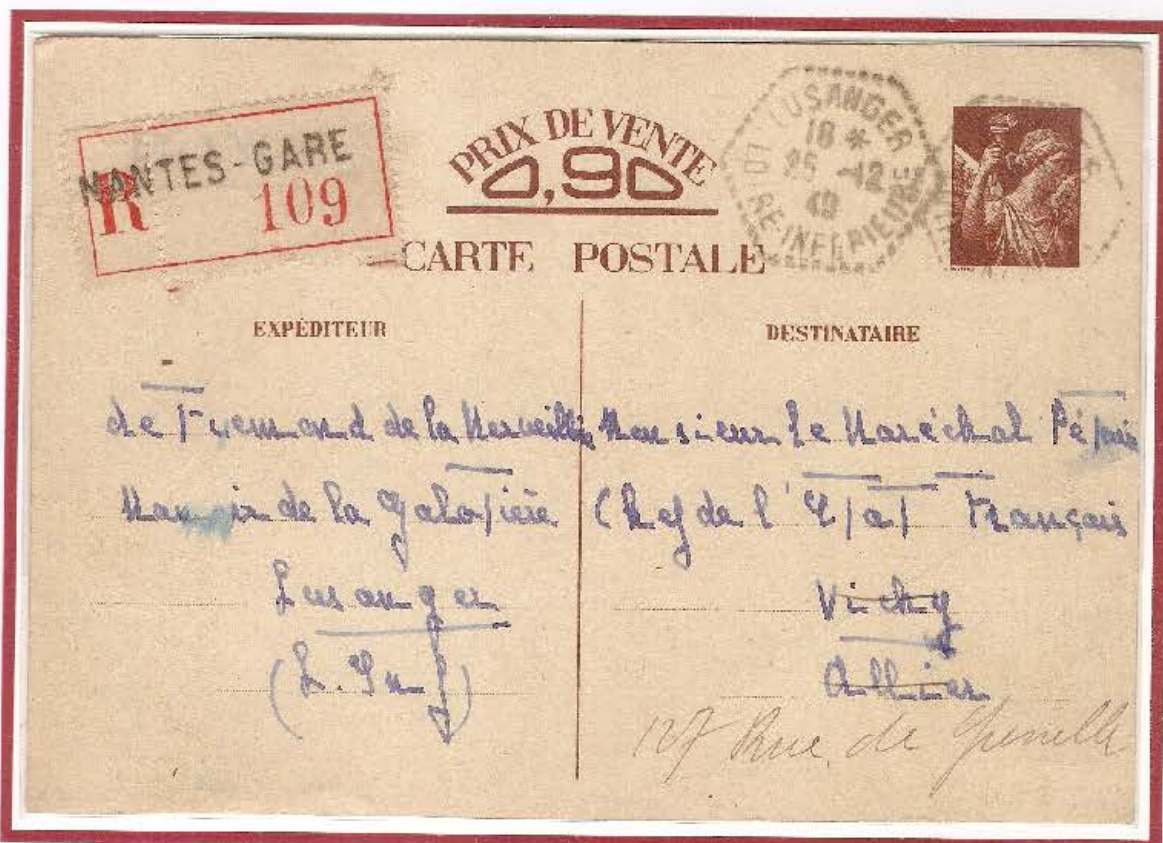 NANTES-GARE
R 109
PRIX DE VENTE
0,90
CARTE POSTALE
LUSANGER
18 *
25 -12
40
LOIRE-INFÉRIEURE
EXPÉDITEUR
de Fremond de la Merveillère
Manoir de la Galotière
Lusanger
(L. Inf)
DESTINATAIRE
Monsieur le Maréchal Pétain
Chef de l'État Français
Vichy
Allier
127 Rue de Grenelle